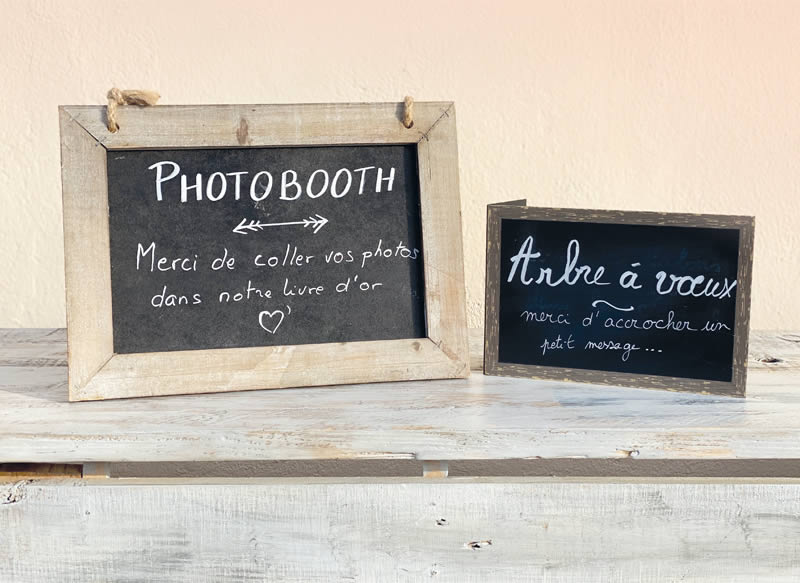 PHOTOBOOTH
Merci de coller vos photos
dans notre livre d'or
Arbre à vœux
merci d'accrocher un
petit message...